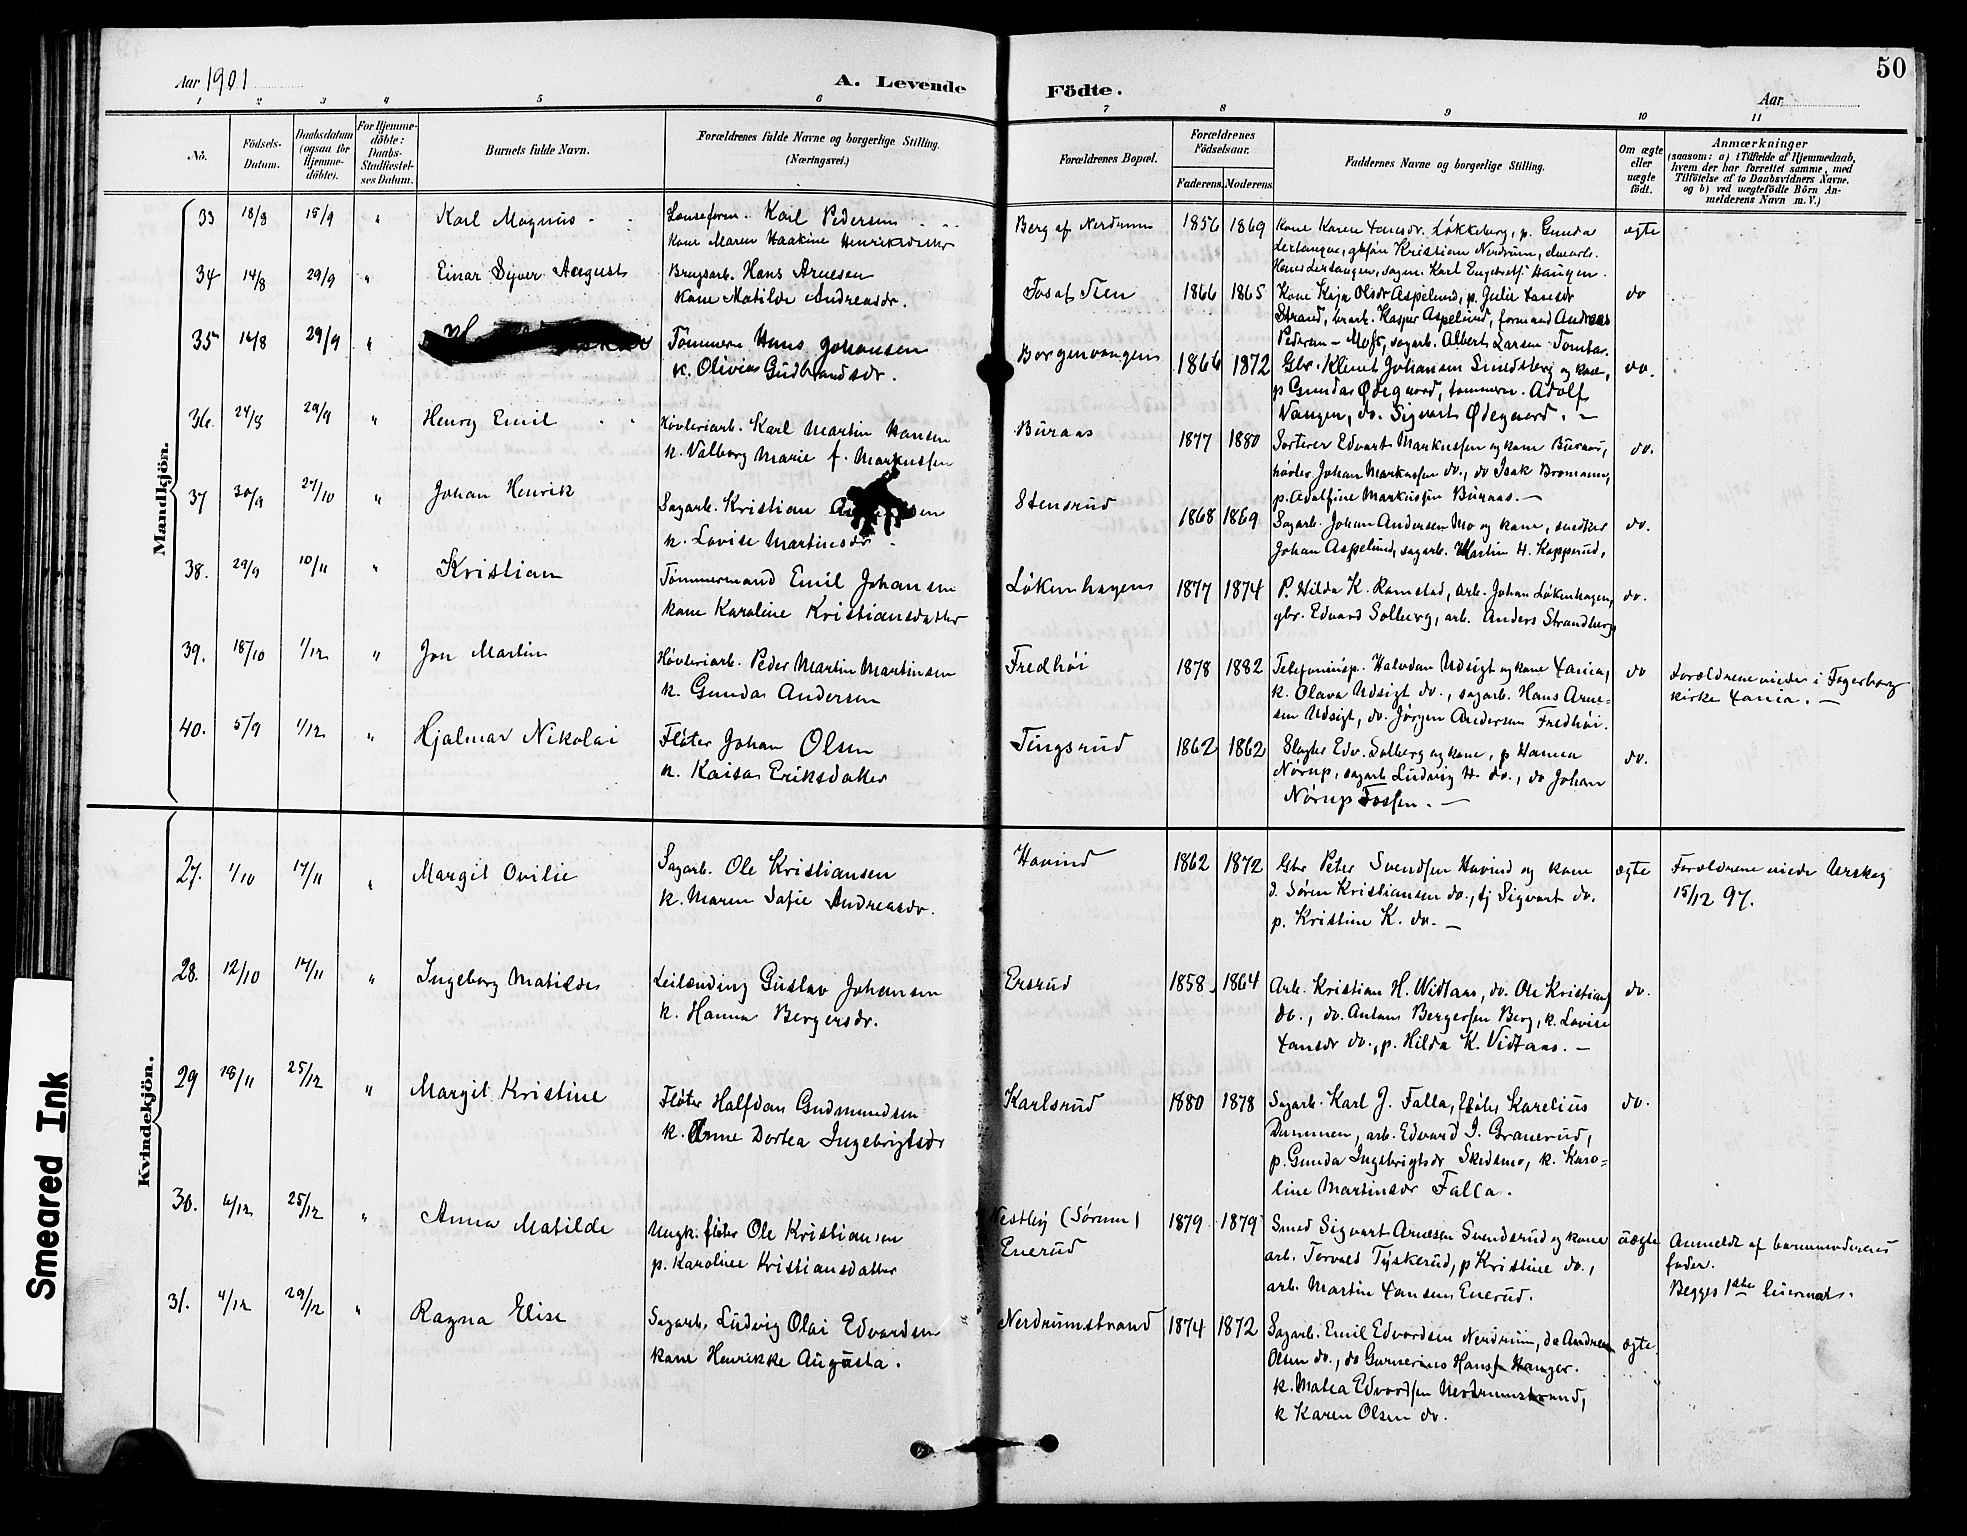 50
Aar 1901
A. Levende
Födte.
Aar
1 2 3 4 5 6 7 8 9 10 11
No.
Födsels-
Datum.
Daabsdatum
(ogsaa for
Hjemme-
döbte).
For Hjemme-
döbte:
Daabs-
Stadfæstel-
ses Datum.
Barnets fulde Navn.
Forældrenes fulde Navne og borgerlige Stilling.
(Næringsvei.)
Forældrenes Bopæl.
Forældrenes
Födselsaar.
Faderens. Moderens.
Faddernes Navne og borgerlige Stilling.
Om ægte
eller
uægte
födt.
Anmærkninger
(saasom: a) i Tilfælde af Hjemmedaab,
hvem der har forrettet samme, med
Tilföielse af to Daabsvidners Navne.
og b) ved uægtefödte Börn An-
melderens Navn m. V.)
Mandkjön.
33 18/8 15/9 " Karl Magnus
Karl Pedersen
kone Maren Haakine Henriksdatter
Berg af Nerdrum 1856 1869
Kone Karen Hansdr. Løkkeberg, p. Gunda
Kristian Nerdrum,
ægte
34 14/8 29/9 " Einar Syver August
Brugsarb. Hans Arnesen
kone Matilde Andreasdr.
Fos af Sten 1866 1865
Kone Kaja Olsdr Aspelund, p. Julie Hansdr
Strand, Kaspar Aspelund, formand Andreas
Pedersen - Mofs, sagarb. Albert Larsen Tomta.
do
35 16/8 29/9 "
Tømmerm Hans Johansen
k. Olivia Gudbrandsdr.
Borgenvangen 1866 1872
Gbr. Klemet Johansen Smedsberg og kone,
p Gunda Ødegaard, tømmerm. Adolf
Vangen, do. Sigvart Ødegaard. -
do.
36. 24/8 29/9 " Henry Emil
Høvleriarb. Karl Martin Hansen
k. Valborg Marie f. Markussen
Buraas 1877 1880
Sorterer Edvart Markussen og kone Buraas,
høvler Johan Markussen do., do Isak Bromann,
p. Adolfine Markussen Buraas. -
do.
37 30/9 27/10 " Johan Henrik
Sagarb. Kristian
k. Lovise Martinsdr
Stensrud 1868 1869
Sagarb. Johan Andersen Mo og kone, snedker
Johan Aspelund, sagarb. Martin H. Kopperud,
do.
38. 29/9 10/11 " Kristian
Tømmermand Emil Johansen
kone Karoline Kristiansdatter
Løkenhagen 1877 1874
P. Hilda K. Ramstad, arb. Johan Løkenhagen,
gbr. Edvard Solberg, arb. Anders Strandberg
do.
39. 18/10 1/12 " Jon Martin
Høvleriarb. Peder Martin Martinsen
k. Gunda Andersen
Fredhøi 1878 1882
Telefoninsp. Halvdan Udsigt og kone Xania,
k. Olava Udsigt do., sagarb. Hans Arne-
sen Udsigt, do. Jørgen Andersen Fredhøi.
do
Forældrene viede i Fagerborg
kirke Xania. -
40. 5/9 1/12 " Hjalmar Nikolai
Fløter Johan Olsen
k. Kaisa Eriksdatter
Tingsrud 1862 1862
Slagter Edv. Solberg og kone, p Hanna
Nørup, sagarb Ludvig H. do., do Johan
Nørup Fossen. -
do.
Kvindekjön.
27. 1/10 17/11 " Margit Ovilie
Sagarb. Ole Kristiansen
k. Maren Sofie Andreasdr.
Hovind 1862 1872
Gbr Peter Svendsen Hovind og kone
d. Søren Kristiansen do., Sigvart do.
p. Kristine K. do. -
ægte
Forældrene viede Urskog
15/12 97.
28. 12/10 17/11 " Ingeborg Matilde
Leilænding Gustav Johansen
k. Hanna Bergersdr.
Ersrud 1858 1864
Arb. Kristian H. Vidtaas, do. Ole Kristians
do., do. Antons Bergersen Berg, k. Lovise
Hansdr do., p. Hilda K. Vidtaas. -
do.
29 18/11 25/12 " Margit Kristine
Fløter Halfdan Gudmundsen
k. Anne Dortea Ingebrigtsdr
Karlsrud 1880 1878
Sagarb. Karl J. Falla, fløter Karelius
Dammen, arb. Edvard J. Granerud,
p. Gunda Ingebrigtsdr Skedsmo, k. Karo-
line Martinsdr Falla.
do.
30. 4/12 25/12 " Anna Matilde
Ungk. fløter Ole Kristiansen
p. Karoline Kristiansdatter
Vestby (Sørum)
Enerud
1879 1879
Smed Sigvart Arnesen Svendsrud og kone
arb. Torvald Tyskerud, p Kristine do.,
arb. Martin Hansen Enerud.
uægte
Anmeldt af barnemoderens
fader.
Begges 1ste leiermaal.
31. 4/12 29/12 " Ragna Elise
Sagarb. Ludvig Olai Edvardsen
kone Henrikke Augusta.
Nerdrumstrand 1874 1872
Sagarb. Emil Edvardsen Nerdrum, do Andreas
Olsen do., do Gunerius Hansen Hanger.
k. Matea Edvardsen Nerdrumstrand,
k Karen Olsen do.
ægte.
Smeared Ink